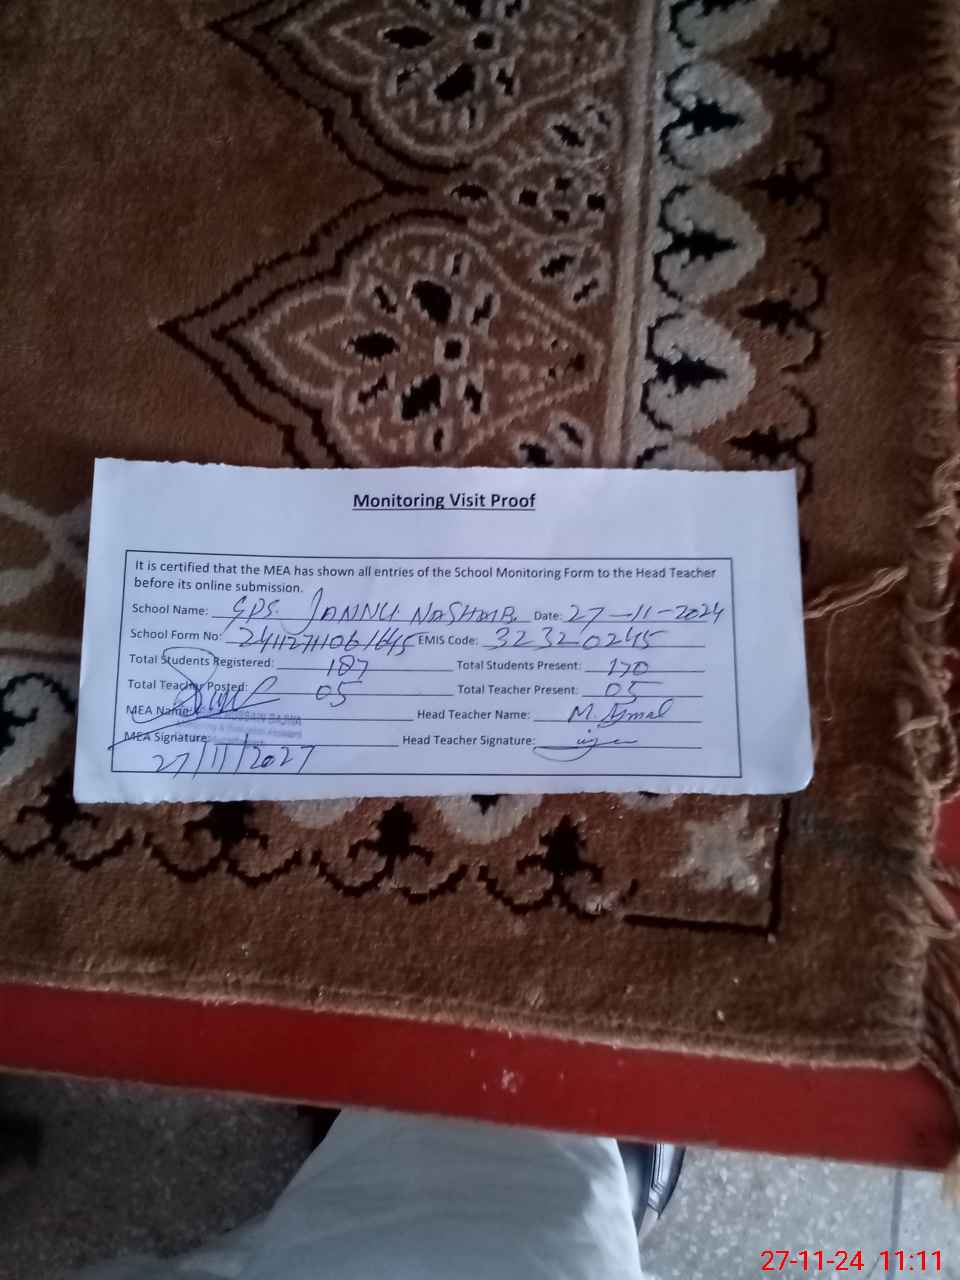 Monitoring Visit Proof
It is certified that the MEA has shown all entries of the School Monitoring Form to the Head Teacher
before its online submission.
School Name: GPS JANNU NASHAIB. Date: 27-11-2024
School Form No: EMIS Code: 32320245
Total Students Registered: 187 Total Students Present: 170
Total Teacher Posted: 05 Total Teacher Present: 05
MEA Name: HUSSAIN BAJWA Head Teacher Name: M. Ajmal
MEA Signature: Head Teacher Signature:
27/11/2027
27-11-24 11:11